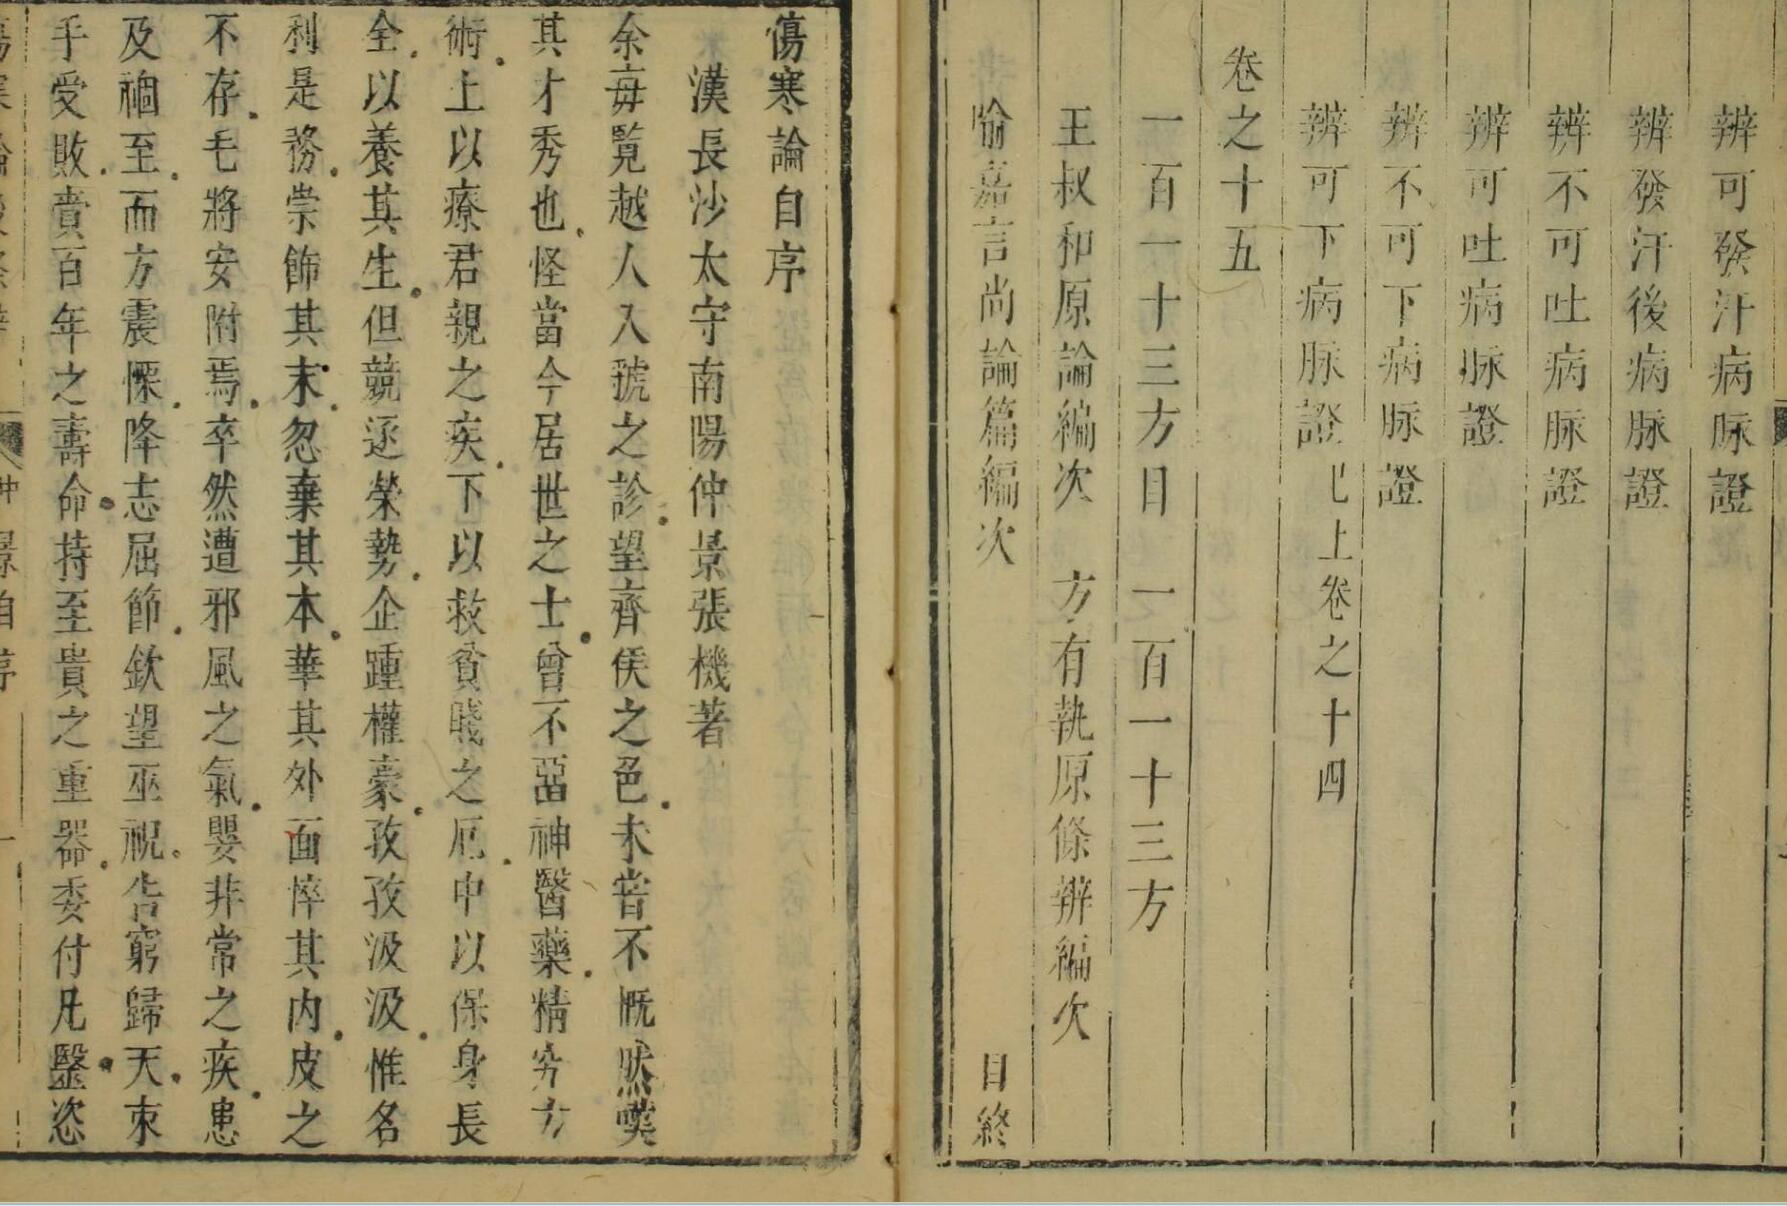 辨可發汗病脉證
辨發汗後病脉證
辨不可吐病脉證
辨可吐病脉證
辨不可下病脉證
辨可下病脉證 已上卷之十四
卷之十五
一百一十三方目 一百一十三方
王叔和原論編次 方有執原條辨編次
喻嘉言尚論篇編次 目終
傷寒論自序
漢長沙太守南陽仲景張機著
余每覽越人入虢之診望齊侯之色未嘗不慨然嘆
其才秀也怪當今居世之士曾不畱神醫藥精究方
術上以療君親之疾下以救貧賤之厄中以保身長
全以養其生但競逐榮勢企踵權豪孜孜汲汲惟名
利是務崇飾其末忽棄其本華其外面悴其内皮之
不存毛將安附焉卒然遭邪風之氣嬰非常之疾患
及禍至而方震慄降志屈節欽望巫祝告窮歸天束
手受敗賫百年之壽命持至貴之重器委付凡毉恣